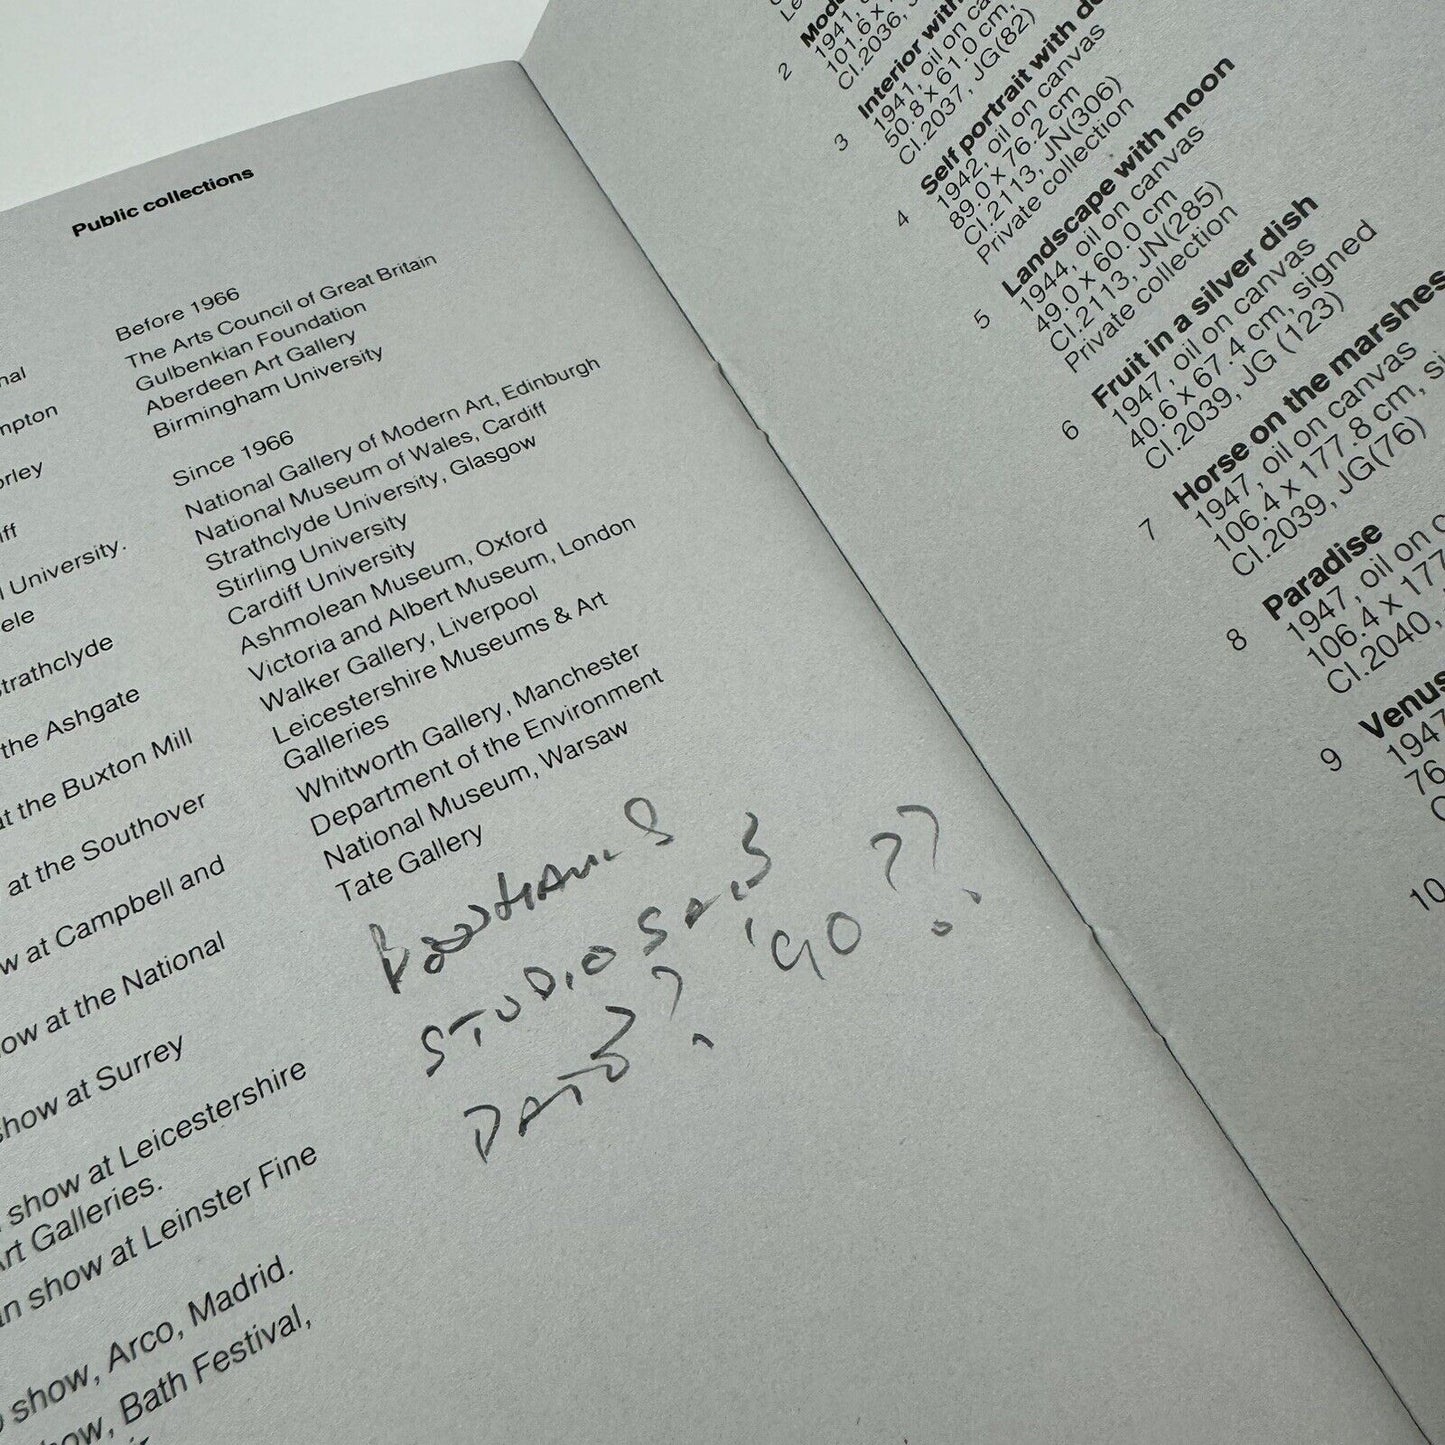 nal
mpton
orley
iff
l University.
ele
Strathclyde
the Ashgate
at the Buxton Mill
at the Southover
w at Campbell and
ow at the National
show at Surrey
show at Leicestershire
Art Galleries.
an show at Leinster Fine
o show, Arco, Madrid.
how, Bath Festival,
Public collections
Before 1966
The Arts Council of Great Britain
Gulbenkian Foundation
Aberdeen Art Gallery
Birmingham University
Since 1966
National Gallery of Modern Art, Edinburgh
National Museum of Wales, Cardiff
Strathclyde University, Glasgow
Stirling University
Cardiff University
Ashmolean Museum, Oxford
Victoria and Albert Museum, London
Walker Gallery, Liverpool
Leicestershire Museums & Art
Galleries
Whitworth Gallery, Manchester
Department of the Environment
National Museum, Warsaw
Tate Gallery
STUDIO
DATE? '90??
2 Mode
1941,
101.6 x
CI.2036,
3 Interior with
1941, oil on ca
50.8 x 61.0 cm,
CI.2037, JG(82)
4 Self portrait with de
1942, oil on canvas
89.0 x 76.2 cm
CI.2113, JN(306)
Private collection
5 Landscape with moon
1944, oil on canvas
49.0 x 60.0 cm
CI.2113, JN(285)
Private collection
6 Fruit in a silver dish
1947, oil on canvas
40.6 x 67.4 cm, signed
CI.2039, JG (123)
7 Horse on the marshes
1947, oil on canvas
106.4 x 177.8 cm, si
CI.2039, JG(76)
8 Paradise
1947, oil on c
106.4 x 177
CI.2040,
9 Venus
1947
76
C
10